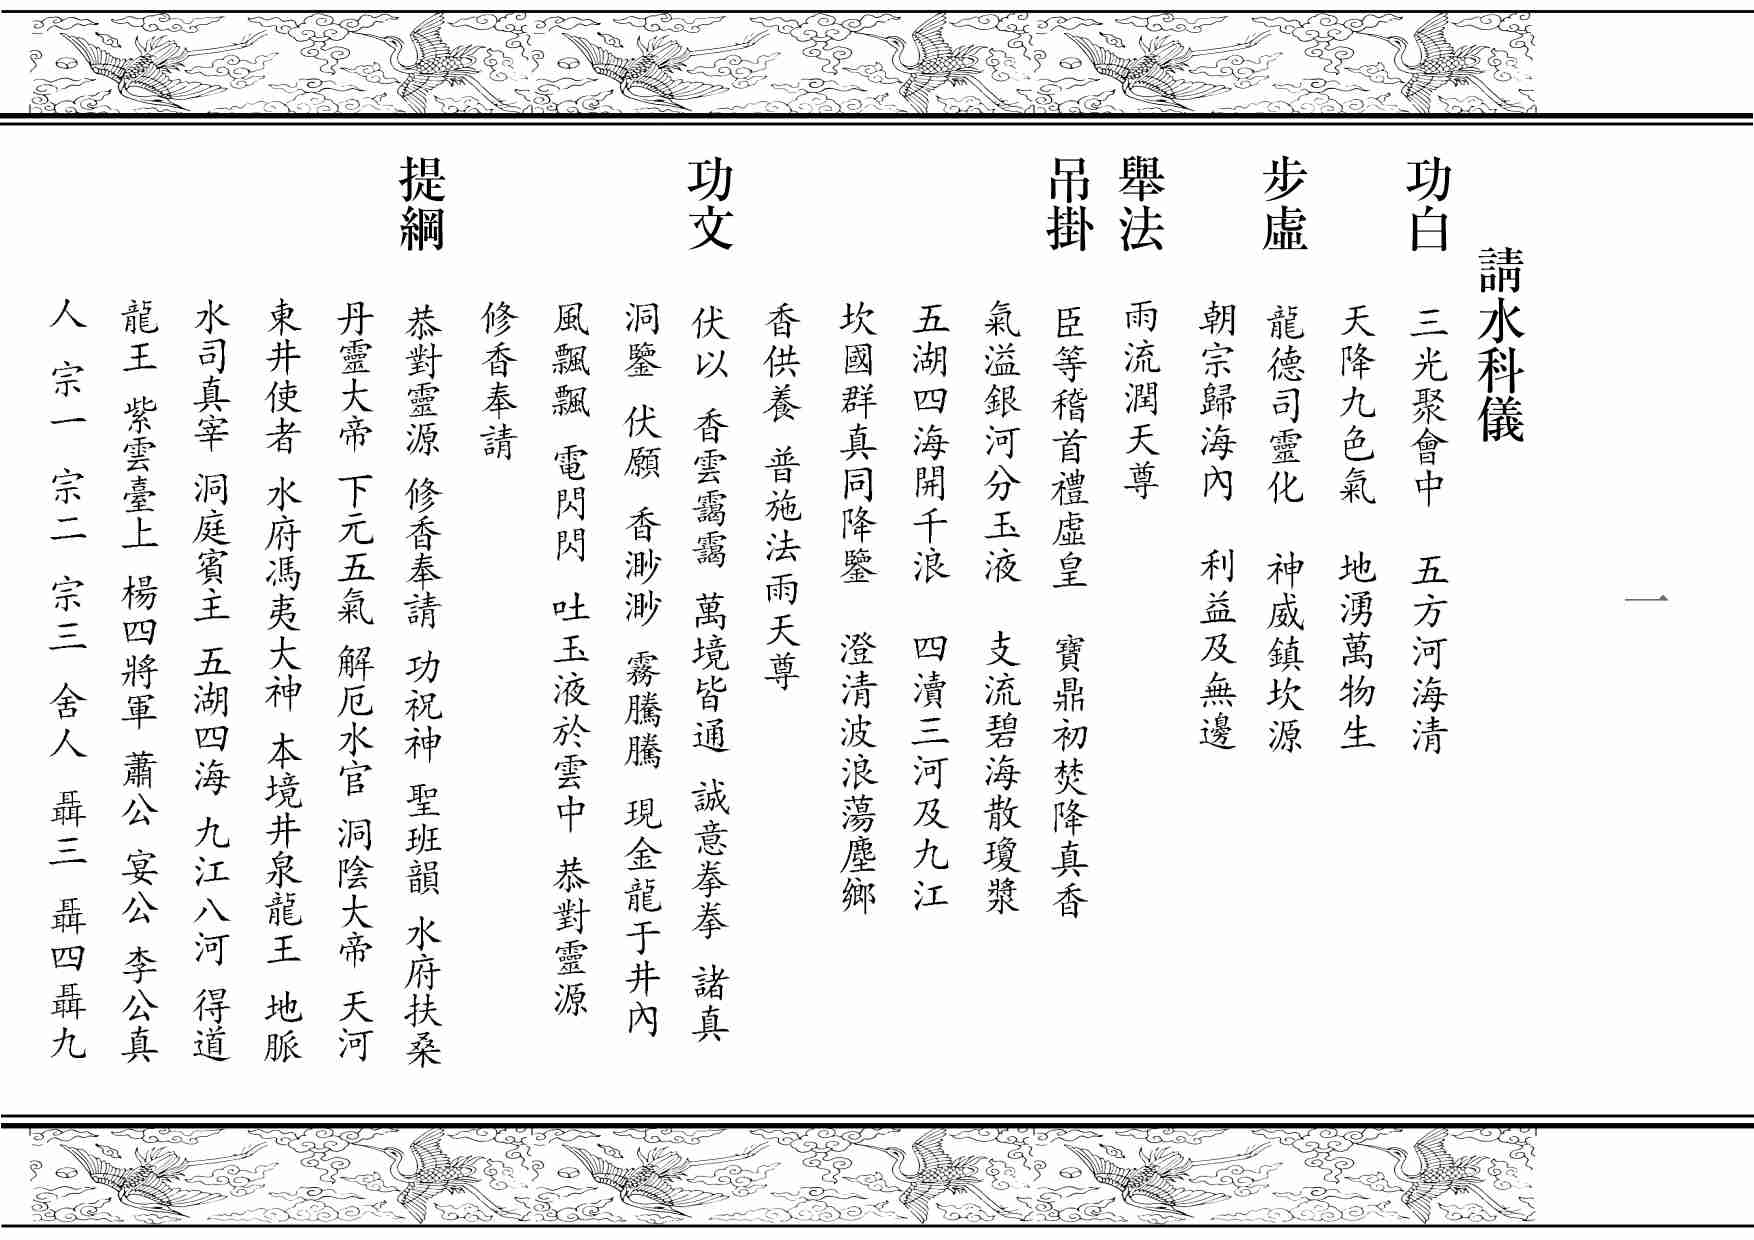 一
請水科儀
功白 三光聚會中 五方河海清
天降九色氣 地湧萬物生
步虛 龍德司靈化 神威鎮坎源
朝宗歸海內 利益及無邊
舉法 雨流潤天尊
吊掛 臣等稽首禮虛皇 寶鼎初焚降真香
氣溢銀河分玉液 支流碧海散瓊漿
五湖四海開千浪 四瀆三河及九江
坎國群真同降鑒 澄清波浪蕩塵鄉
香供養 普施法雨天尊
功文 伏以 香雲靄靄 萬境皆通 誠意拳拳 諸真
洞鑒 伏願 香渺渺 霧騰騰 現金龍于井內
風飄飄 電閃閃 吐玉液於雲中 恭對靈源
修香奉請
提綱 恭對靈源 修香奉請 功祝神 聖班韻 水府扶桑
丹靈大帝 下元五氣 解厄水官 洞陰大帝 天河
東井使者 水府馮夷大神 本境井泉龍王 地脈
水司真宰 洞庭賓主 五湖四海 九江八河 得道
龍王 紫雲臺上 楊四將軍 蕭公 宴公 李公真
人 宗一 宗二 宗三 舍人 聶三 聶四聶九